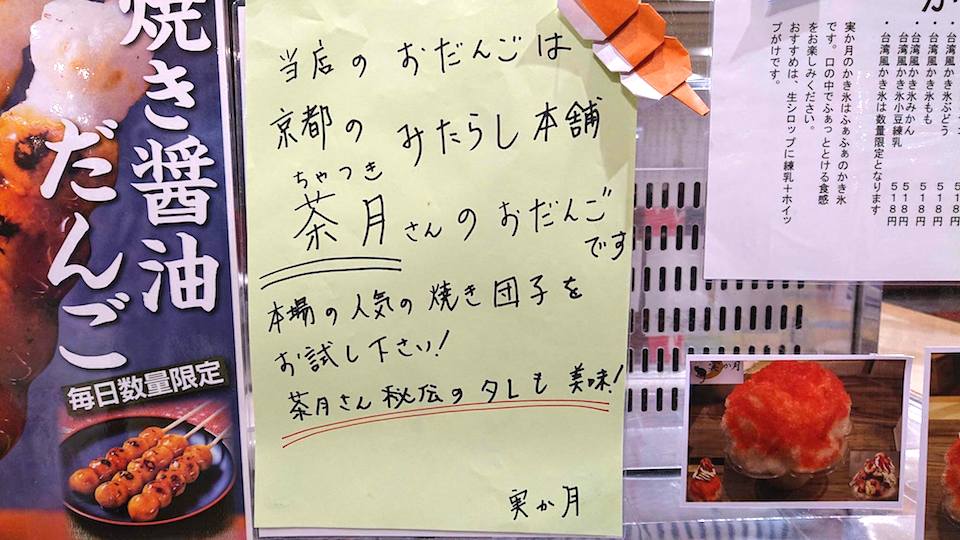 焼き醤油
だんご
毎日数量限定
当店の おだんごは
京都の みたらし本舗
ちゃつき
茶月さんのおだんご
です
本場の人気の焼き団子を
お試し下さい!
茶月さん秘伝のタレも美味!
実か月
・台湾風かき氷ぶどう 518
・台湾風かき氷もも 518円
・台湾風かき氷みかん 518円
・台湾風かき氷小豆練乳 518円
・台湾風かき氷は数量限定となります
実か月のかき氷はふぁふぁのかき氷
です。口の中でふぁっととける食感
をお楽しみください。
おすすめは、生シロップに練乳+ホイッ
プがけです。
実か月